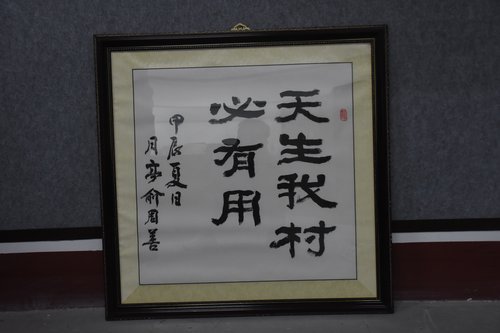 天生我材
必有用
甲辰夏日
月亭俞国善